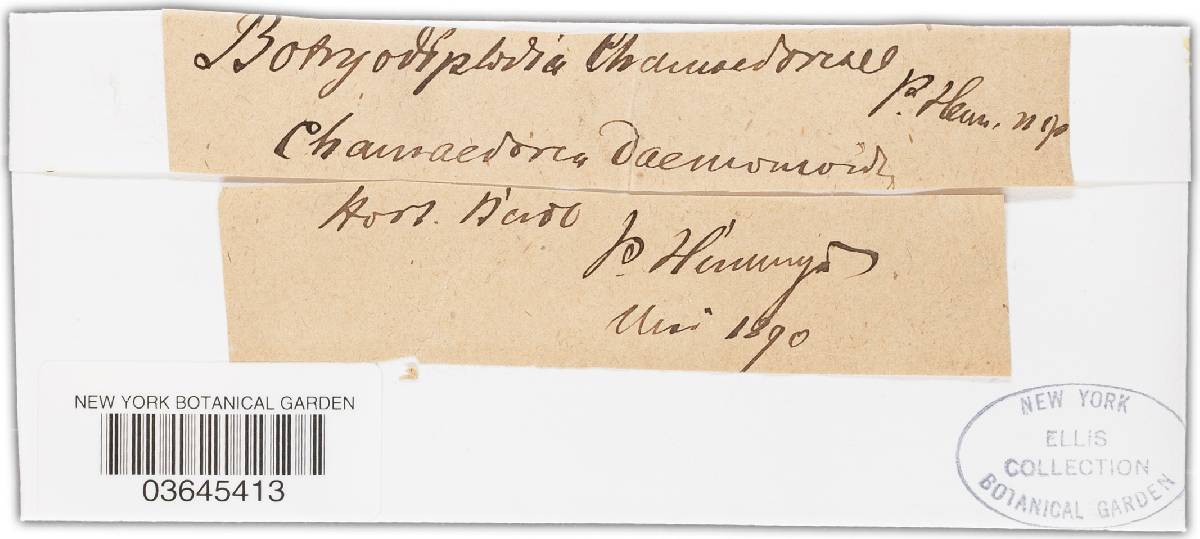 Botryodiplodia Chamaedoreae
P. Henn. n sp
Chamaedorea Daemonoid
Hort. Berol
P. Hennings
Mai 1890
NEW YORK BOTANICAL GARDEN
03645413
NEW YORK
ELLIS
COLLECTION
BOTANICAL GARDEN